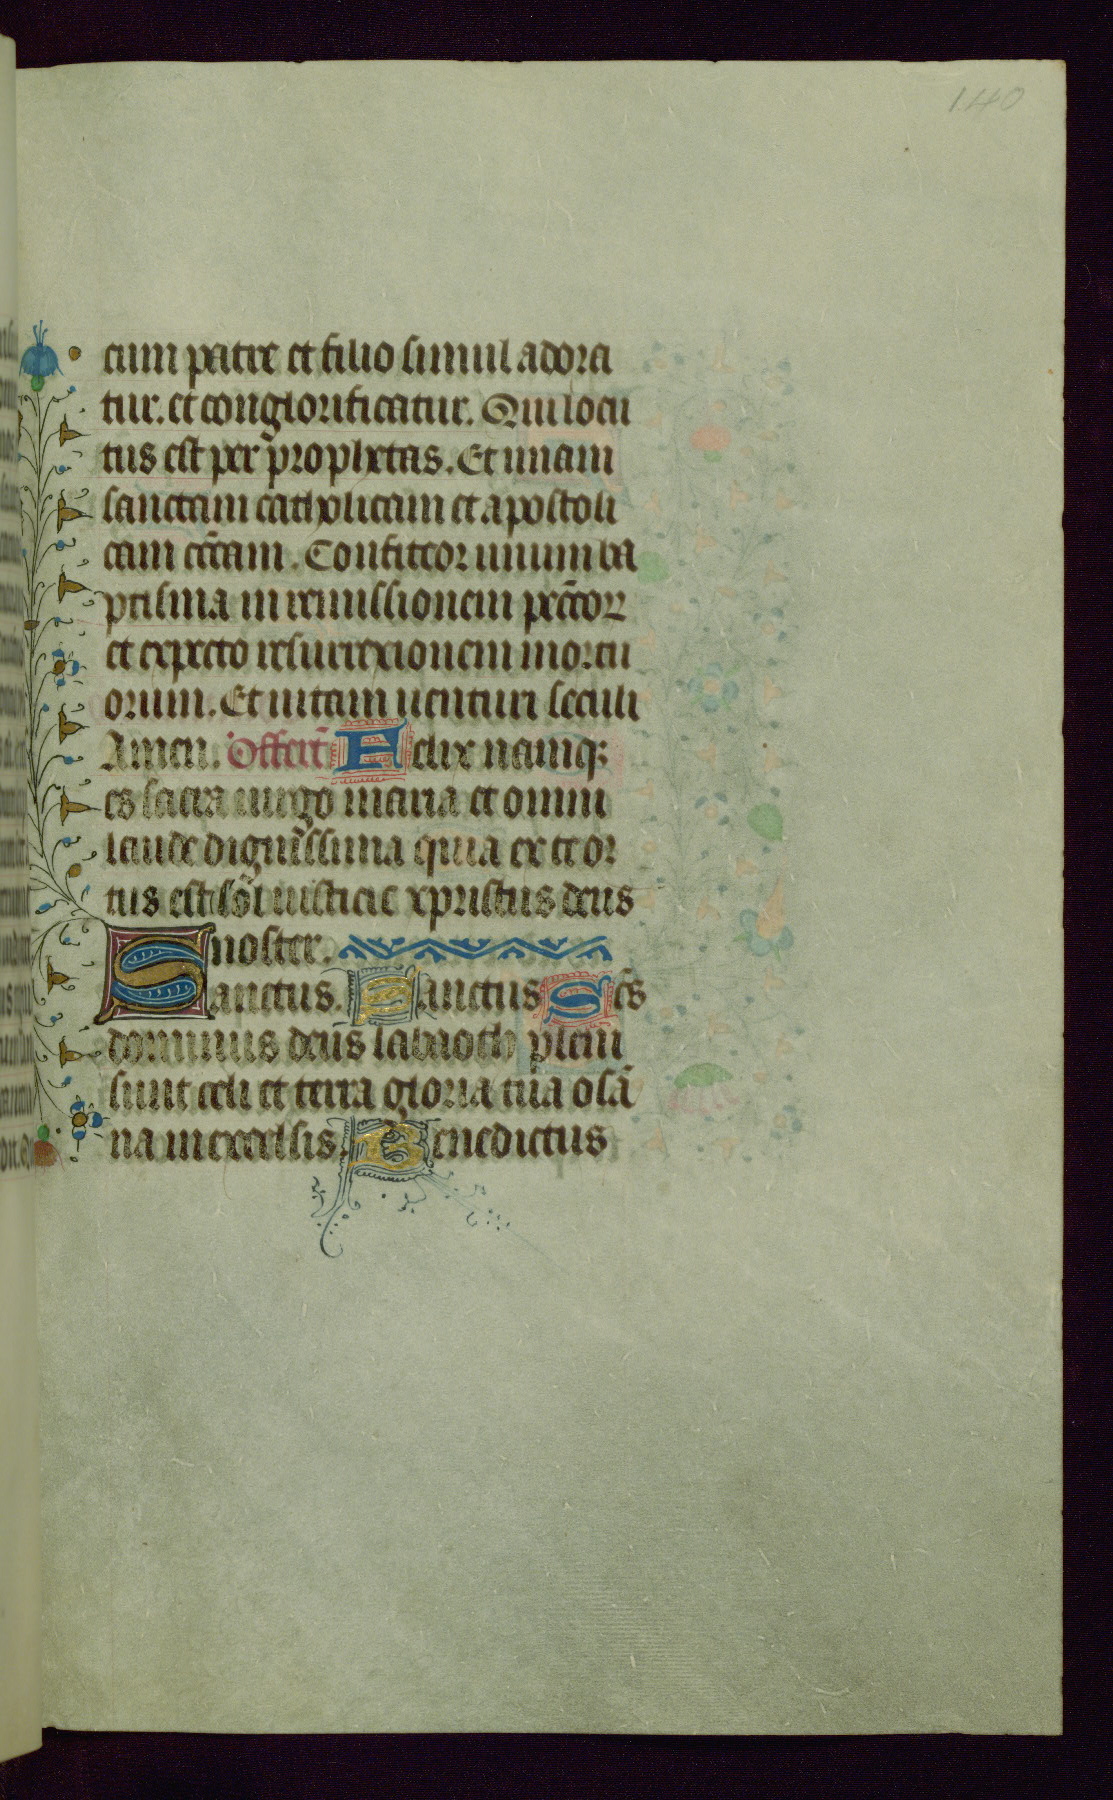 140
cum patre et filio simul adora
tur. et conglorificatur. Qui locu
tus est per prophetas. Et unam
sanctam catholicam et apostoli
cam ecc̄am. Confiteor unum ba
ptisma in remissionem pecc̄oꝝ
et expecto resurrexionem mortu
orum. Et uitam uenturi seculi
Amen. Offert̄ Felix namqꝫ
es sacra uirgo maria et omni
laude dignissima quia ex te or
tus est sol iusticie xpristus deus
noster.
Sanctus. Sanctus Sc̄s
dominus deus sabaoth pleni
sunt celi et terra gloria tua osā
na in excelsis. Benedictus